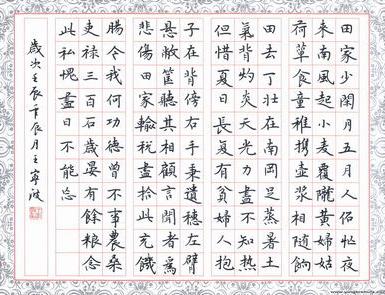 田家少閑月五月人倍忙夜
來南風起小麥覆隴黃婦姑
荷簞食童稚攜壺漿相隨餉
田去丁壯在南岡足蒸暑土
氣背灼炎天光力盡不知熱
但惜夏日長復有貧婦人抱
子在背傍右手秉遺穗左臂
懸敝筐聽其相顧言聞者為
悲傷田家輸稅盡拾此充饑
腸今我何功德曾不事農桑
吏祿三百石歲晏有餘粮念
此私愧盡日不能忘
歲次壬辰年辰月王寧波